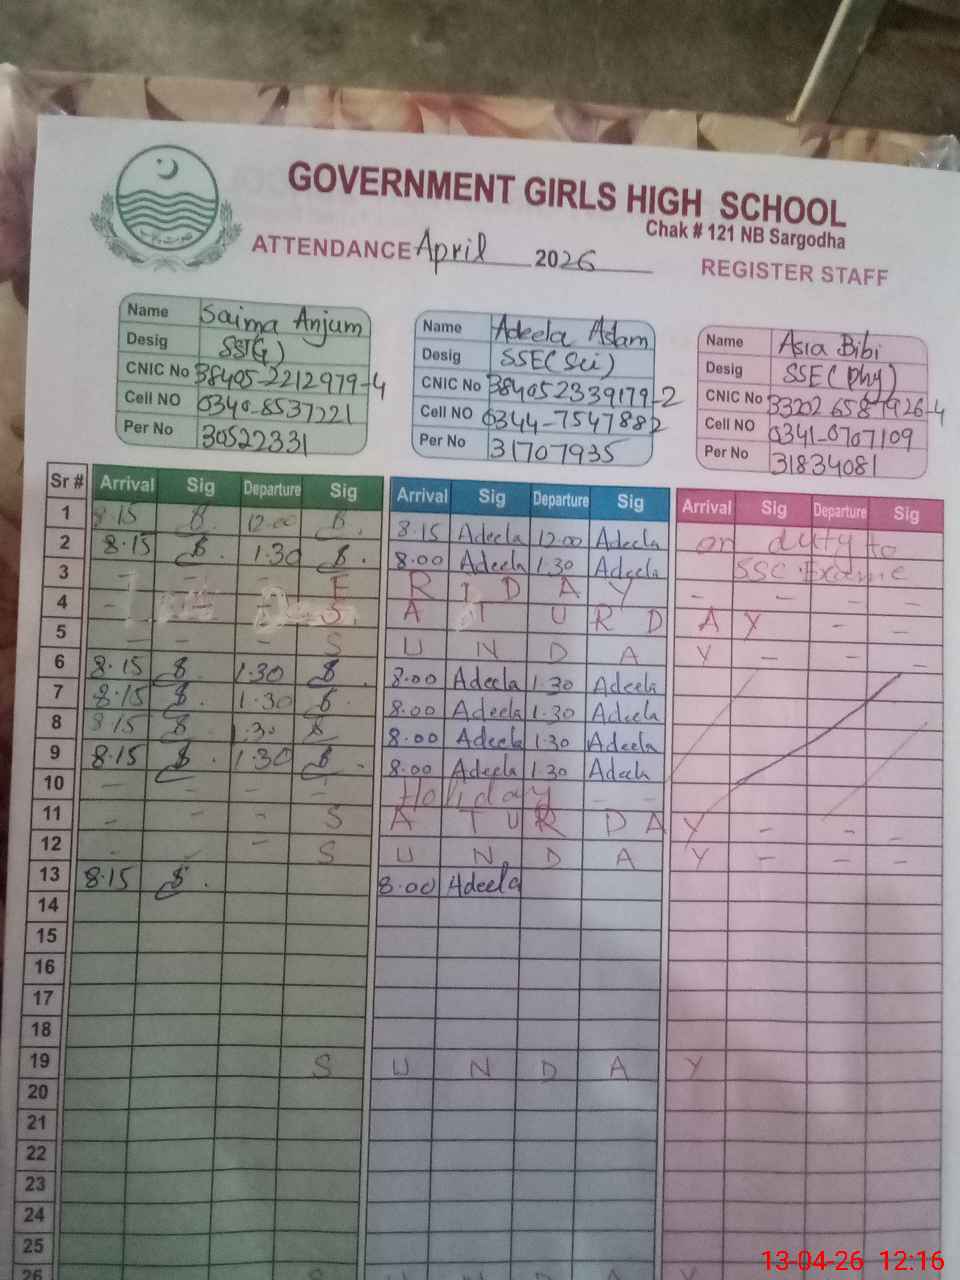 GOVERNMENT GIRLS HIGH SCHOOL
Chak # 121 NB Sargodha
ATTENDANCE April 2026
REGISTER STAFF
Name Saima Anjum
Desig SST(G)
CNIC No 38405-2212979-4
Cell NO 0340-8537221
Per No 30522331
Name Adeela Aslam
Desig SSE(Sci)
CNIC No 384052339179-2
Cell NO 0344-7547882
Per No 31707935
Name Asia Bibi
Desig SSE(Phy)
CNIC No 33202 6587926-4
Cell NO 0341-0707109
Per No 31834081
Sr # Arrival Sig Departure Sig Arrival Sig Departure Sig Arrival Sig Departure Sig
1 8.15 12.00 8.15 Adeela 12.00 Adeela on duty to
2 8.15 1.30 8.00 Adeela 1.30 Adeela SSC Exame
3 - - - F R I D A Y - - - -
4 - S A T U R D A Y - -
5 - - - S U N D A Y - - -
6 8.15 1.30 8.00 Adeela 1.30 Adeela
7 8.15 1.30 8.00 Adeela 1.30 Adeela
8 8.15 1.30 8.00 Adeela 1.30 Adeela
9 8.15 1.30 8.00 Adeela 1.30 Adeela
10 - - - - Holiday - -
11 - - - S A T U R D A Y - - -
12 - - - S U N D A Y - - -
13 8.15 8.00 Adeela
14
15
16
17
18
19 S U N D A Y
20
21
22
23
24
25
26 S U N D A Y
13-04-26 12:16